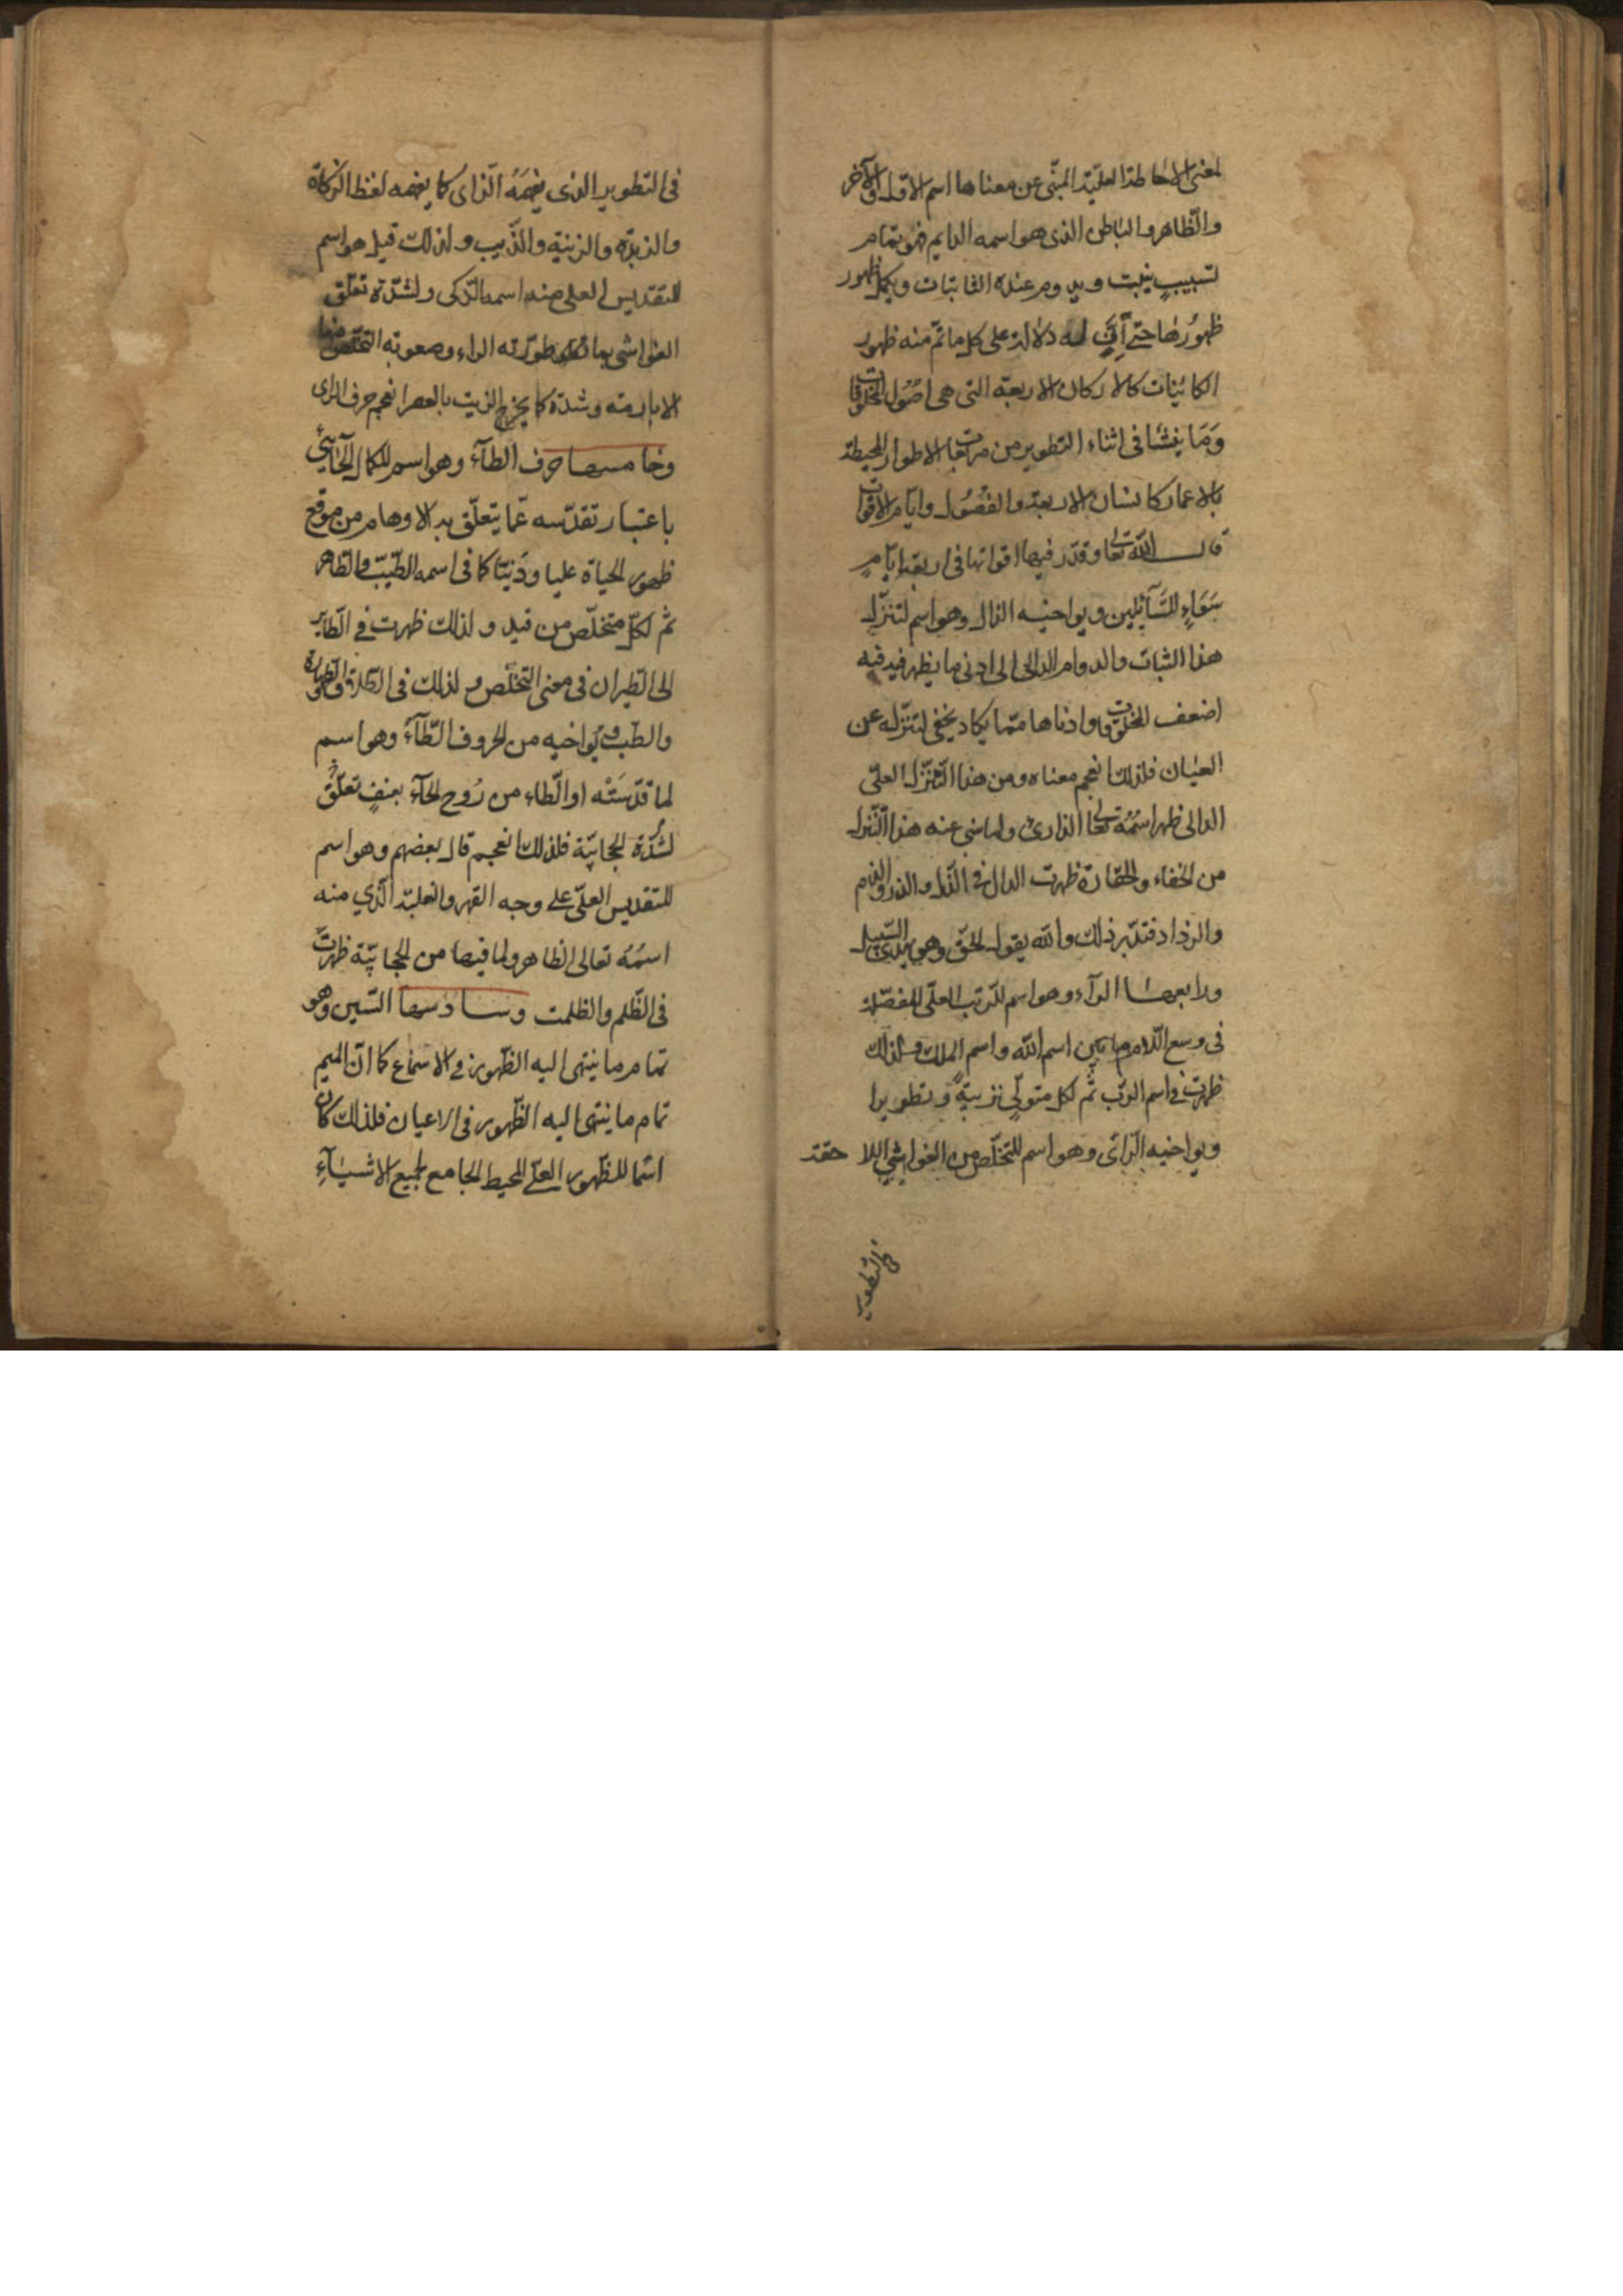 لمعنى الاحاطة العلية المبنى عن معناها اسم الاول والآخر
والظاهر والباطن الذى هو اسمه الدايم فهو بتمام
تسبيب يثبت ويدوم عنده الثابتات ويكمل ظهور
ظهورها حتى له دلالة على كل ما تم منه ظهور
الكائنات كالاركان الاربعة التى هى اصول المخلوقات
وما ينشا فى اثناء التطوير من مرتبها الاطوار المحيطة
بالاعمار كاسنان الاربعة والفصول وايام الاقوات
قال الله تعالى وقدر فيها اقواتها فى اربعة ايام
سواء للسآئلين ويواخيه الذال وهو اسم لتنزل
هذا الثبات والدوام الدالى الى ادنى ما يظهر فيه
اضعف المخلوقات وادناها مما يكاد يخفى لتنزله عن
العيان فلذلك انعجم معناه ومن هذا التنزل العلى
الدالى ظهر اسمه تعالى الذارئ ولما نبى عنه هذا التنزل
من الخفاء والحقارة ظهرت الذال فى الذل والذر والذم
والرذاذ فتدبر ذلك والله يقول الحق وهو يهدى السبيل
ورابعها الرآء وهو اسم للرتب العلى المفصلة
فى وسع اللام ما بين اسم الله واسم الملك ولذلك
ظهرت فى اسم الرب ثم لكل متولى تربية وتطويرا
ويواخيه الزاى وهو اسم للتخلص من الغواشى اللاحقة
فى التطوير
فى التطوير الذى يفهمه الزاى كما يفهمه لفظ الزكاة
والزبدة والزينة والزبيب ولذلك قيل هو اسم
للتقديس العلى منه اسمه الزكى ولشدة تعلق
الغواشى بما طورته الراء وصعوبة التخلص منها
الا بازمة وشدة كما يخرج الزيت بالعصر انعجم حرف الزاى
وخامسها حرف الطآء وهو اسم للكمال الحآئى
باعتبار تقدسه عما يتعلق به الاوهام من موقع
ظهور الحياة عليا ودنيا كما فى اسمه الطيب والطاهر
ثم لكل متخلص من قيد ولذلك ظهرت فى الطاير
الى الطيران فى معنى التخلص ولذلك فى الطهارة
والطب ويواخيه من الحروف الظآء وهو اسم
لما قدسته او الطاء من روح الحآء بعنف تعلق
لشدة الحجابية فلذلك انعجم قال بعضهم وهو اسم
للتقديس العلى على وجه القهر والغلبة الذي منه
اسمه تعالى الظاهر ولما فيها من الحجابية ظهرت
فى الظلم والظلمت وسادسها السين وهو
تمام ما ينتهى اليه الظهور فى الاسماع كما ان الميم
تمام ما ينتهى اليه الظهور فى الاعيان فلذلك كان
اسما للظهور العلى المحيط الجامع لجميع الاشيآء